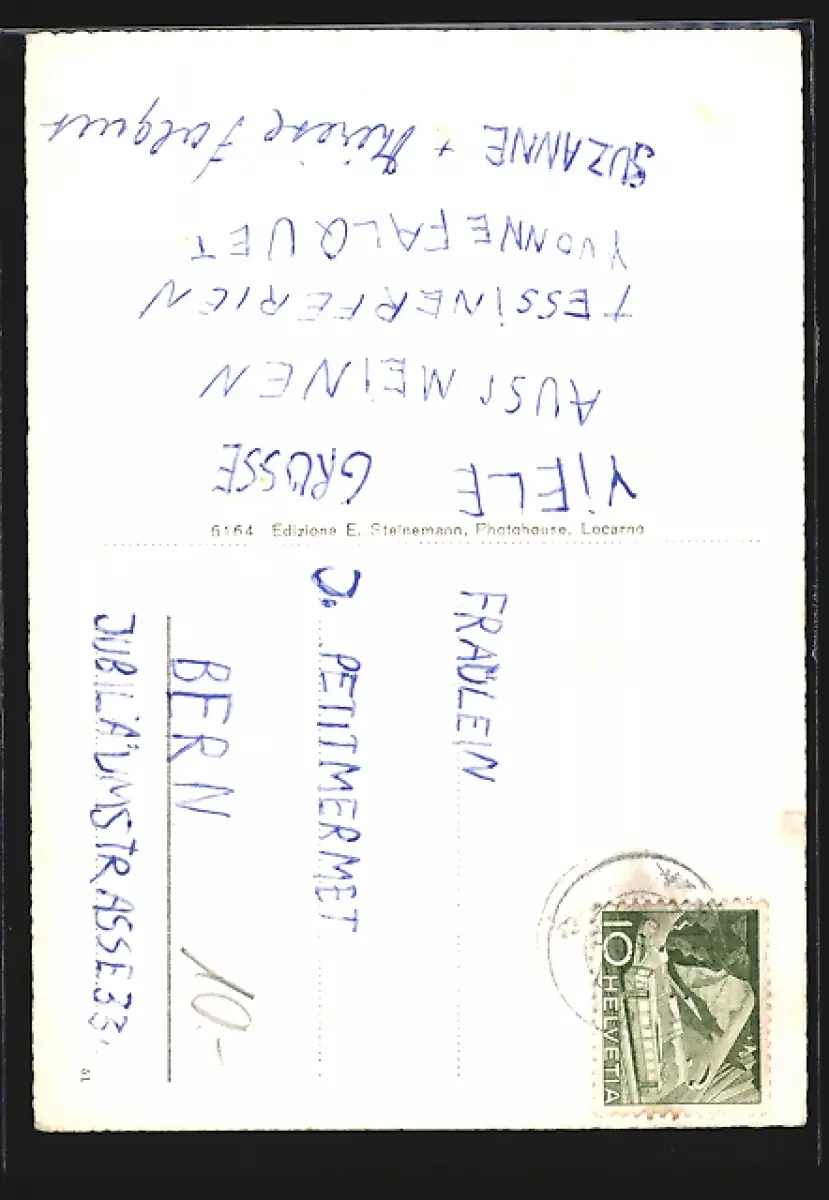 VIELE GRÜSSE
AUS MEINEN
TESSINERFERIEN
YVONNE FALQUET
SUZANNE + Thérèse Falquet
6164 Edizione E. Steinemann, Photohouse, Locarno
FRÄULEIN
J. PETITMERMET
BERN
JUBILÄUMSTRASSE 33
10.-
10
HELVETIA